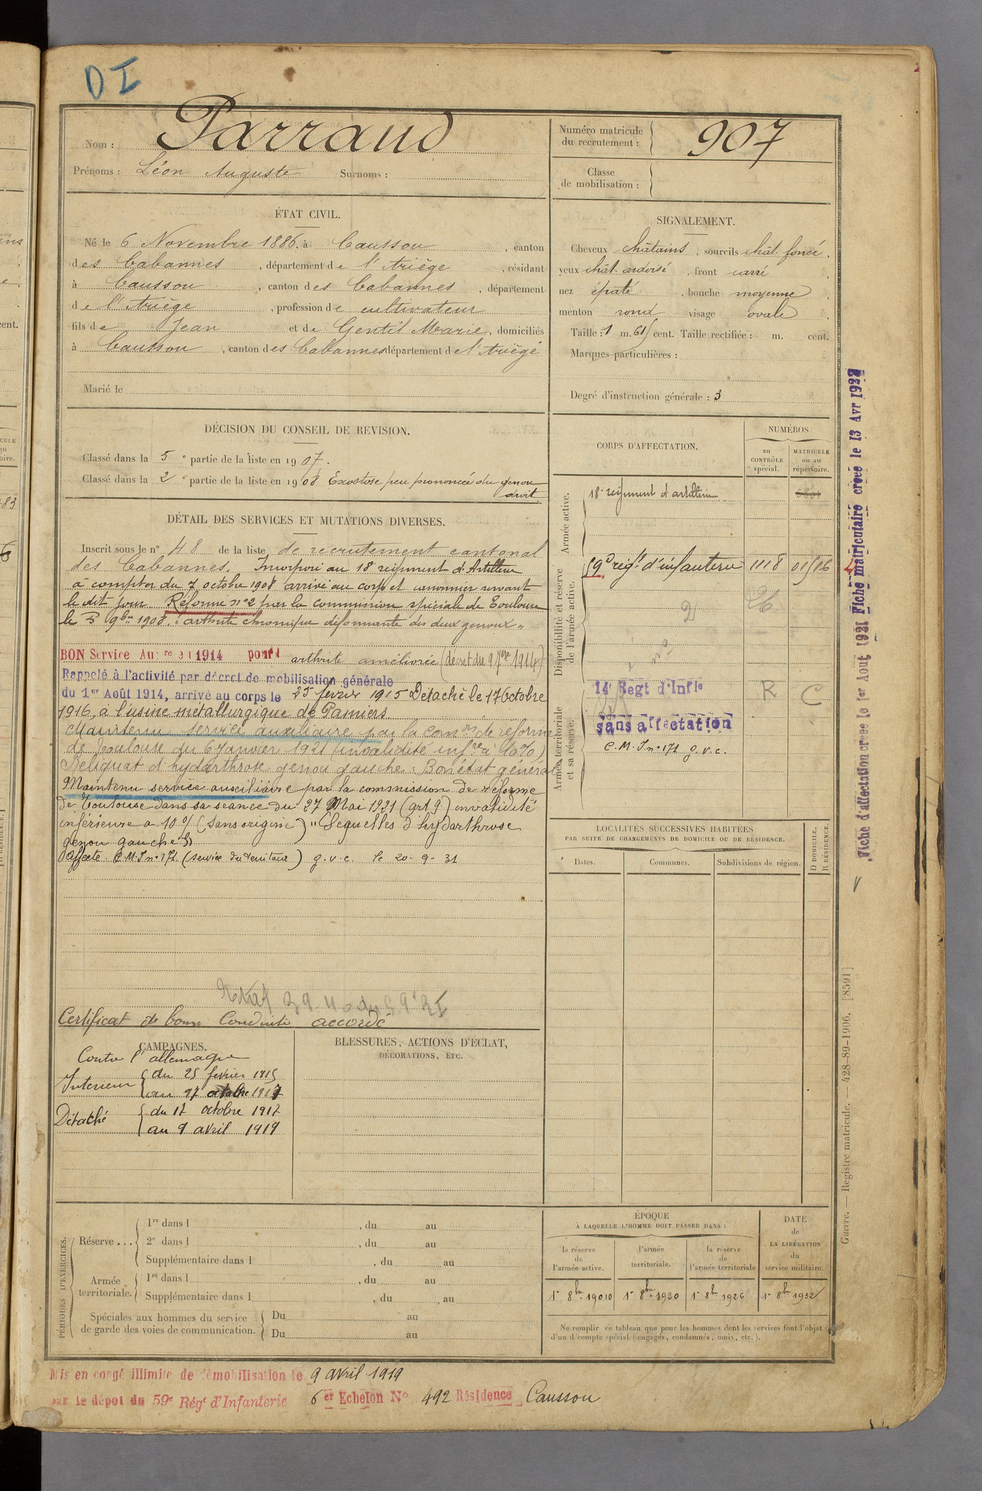 D I
Nom : Parraud
Prénoms : Léon Auguste Surnoms :
Numéro matricule du recrutement : 907
Classe de mobilisation :
ÉTAT CIVIL.
Né le 6 Novembre 1886, à Caussou, canton
des Cabannes, département de l'Ariège, résidant
à Caussou, canton des Cabannes, département
de l'Ariège, profession de cultivateur
fils de Jean et de Gentil Marie, domiciliés
à Caussou, canton des Cabannes département de l'Ariège
Marié le
SIGNALEMENT.
Cheveux châtains, sourcils chât. foncé,
yeux chât. ardoisé, front carré
nez épaté, bouche moyenne
menton rond visage ovale
Taille : 1 m. 61 cent. Taille rectifiée : m. cent.
Marques particulières :
Degré d'instruction générale : 3
DÉCISION DU CONSEIL DE REVISION.
Classé dans la 5e partie de la liste en 1907.
Classé dans la 2e partie de la liste en 1908 Exostose peu prononcée du genou
droit.
DÉTAIL DES SERVICES ET MUTATIONS DIVERSES.
Inscrit sous le n° 48 de la liste de recrutement cantonal
des Cabannes. Incorporé au 18e régiment d'Artillerie
à compter du 7 octobre 1908 arrivé au corps et canonnier servant
le dit jour. Réformé n° 2 par la commission spéciale de Toulouse
le 5 9bre 1908. "arthrite chronique déformante des deux genoux"
BON Service Au 1914 pour arthrite améliorée (décret du 9 7bre 1914)
Rappelé à l'activité par décret de mobilisation générale
du 1er Août 1914, arrivé au corps le 25 février 1915 Détaché le 17 Octobre
1916, à l'usine métallurgique de Pamiers
Maintenu service auxiliaire par la Comon de réforme
de Toulouse du 6 Janvier 1921 (invalidité infre à 10%)
Reliquat d'hydarthrose genou gauche. Bon état général
Maintenu service auxiliaire par la commission de réforme
de Toulouse dans sa séance du 27 Mai 1921 (art 9) invalidité
inférieure à 10% (sans origine) "Séquelles d'hydarthrose
genou gauche"
Affecté C.M.I n° 171 (service du territoire) g.v.c. le 20-9-31
Certificat de bonne Conduite accordé
CORPS D'AFFECTATION.
NUMÉROS
au CONTRÔLE spécial.
MATRICULE ou au répertoire.
Armée active.
18e régiment d'artillerie
Disponibilité et réserve de l'armée active.
59e régt d'infanterie 1118
Armée territoriale et sa réserve.
14e Regt d'Inf1e R C
sans affectation
C.M.I n° 171 g.v.c.
LOCALITÉS SUCCESSIVES HABITÉES
PAR SUITE DE CHANGEMENTS DE DOMICILE OU DE RÉSIDENCE.
Dates. Communes. Subdivisions de région. D DOMICILE. R RÉSIDENCE.
CAMPAGNES.
Contre l'allemagne
Intérieur du 25 février 1915
au octobre 1917
Détaché du 17 octobre 1917
au 9 avril 1919
BLESSURES, ACTIONS D'ÉCLAT,
DÉCORATIONS, ETC.
PÉRIODES D'EXERCICES.
Réserve ... 1re dans l , du au
2e dans l , du au
Supplémentaire dans l , du au
Armée territoriale. 1re dans l , du au
Supplémentaire dans l , du au
Spéciales aux hommes du service de garde des voies de communication. Du au
Du au
ÉPOQUE
À LAQUELLE L'HOMME DOIT PASSER DANS :
la réserve de l'armée active.
l'armée territoriale.
la réserve de l'armée territoriale
DATE de LA LIBÉRATION du service militaire.
1er 8bre 1920 1er 8bre 1926
Ne remplir ce tableau que pour les hommes dont les services font l'objet
d'un décompte spécial (engagés, condamnés, omis, etc.).
Mis en congé illimité de démobilisation le 9 avril 1919
par le dépôt du 59e Régt d'Infanterie 6e Echelon N° 492 Résidence Caussou
Fiche d'affectation créée le 1er Aout 1921 Fiche matriculaire créée le 13 Avr 1927
Guerre. — Registre matricule. — 428-89-1906. [8591]